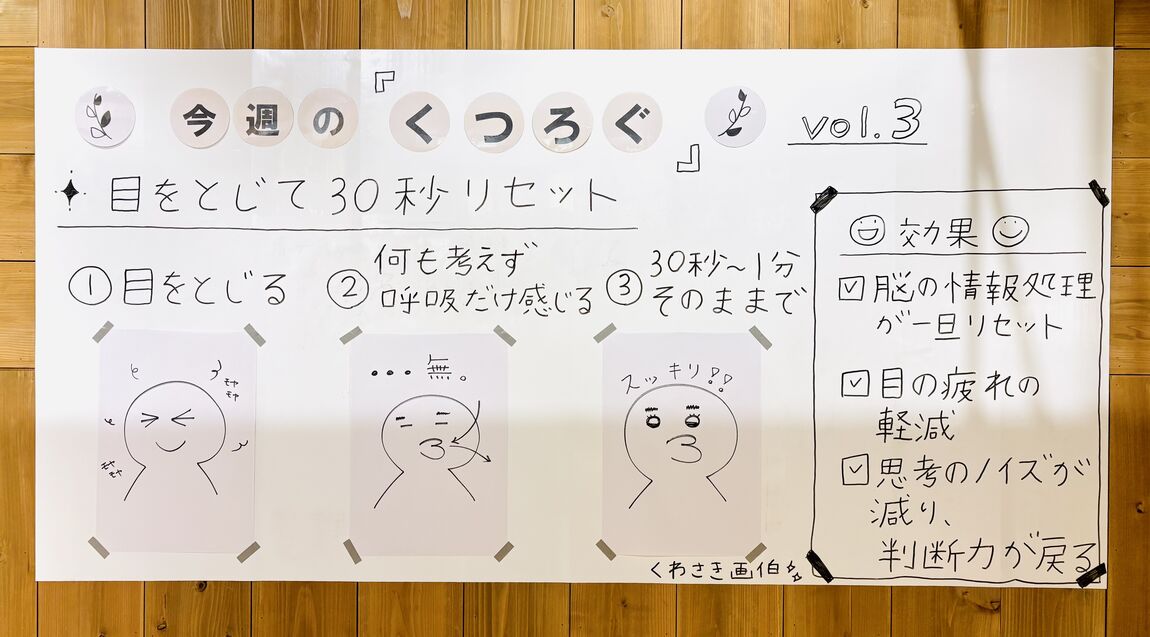 今週の『くつろぐ』 vol.3
目をとじて30秒リセット
①目をとじる
モヤモヤ
モヤモヤ
②何も考えず
呼吸だけ感じる
・・・無。
③30秒〜1分
そのままで
スッキリ!!
くわさき画伯
効果
☑脳の情報処理
が一旦リセット
☑目の疲れの
軽減
☑思考のノイズが
減り、
判断力が戻る